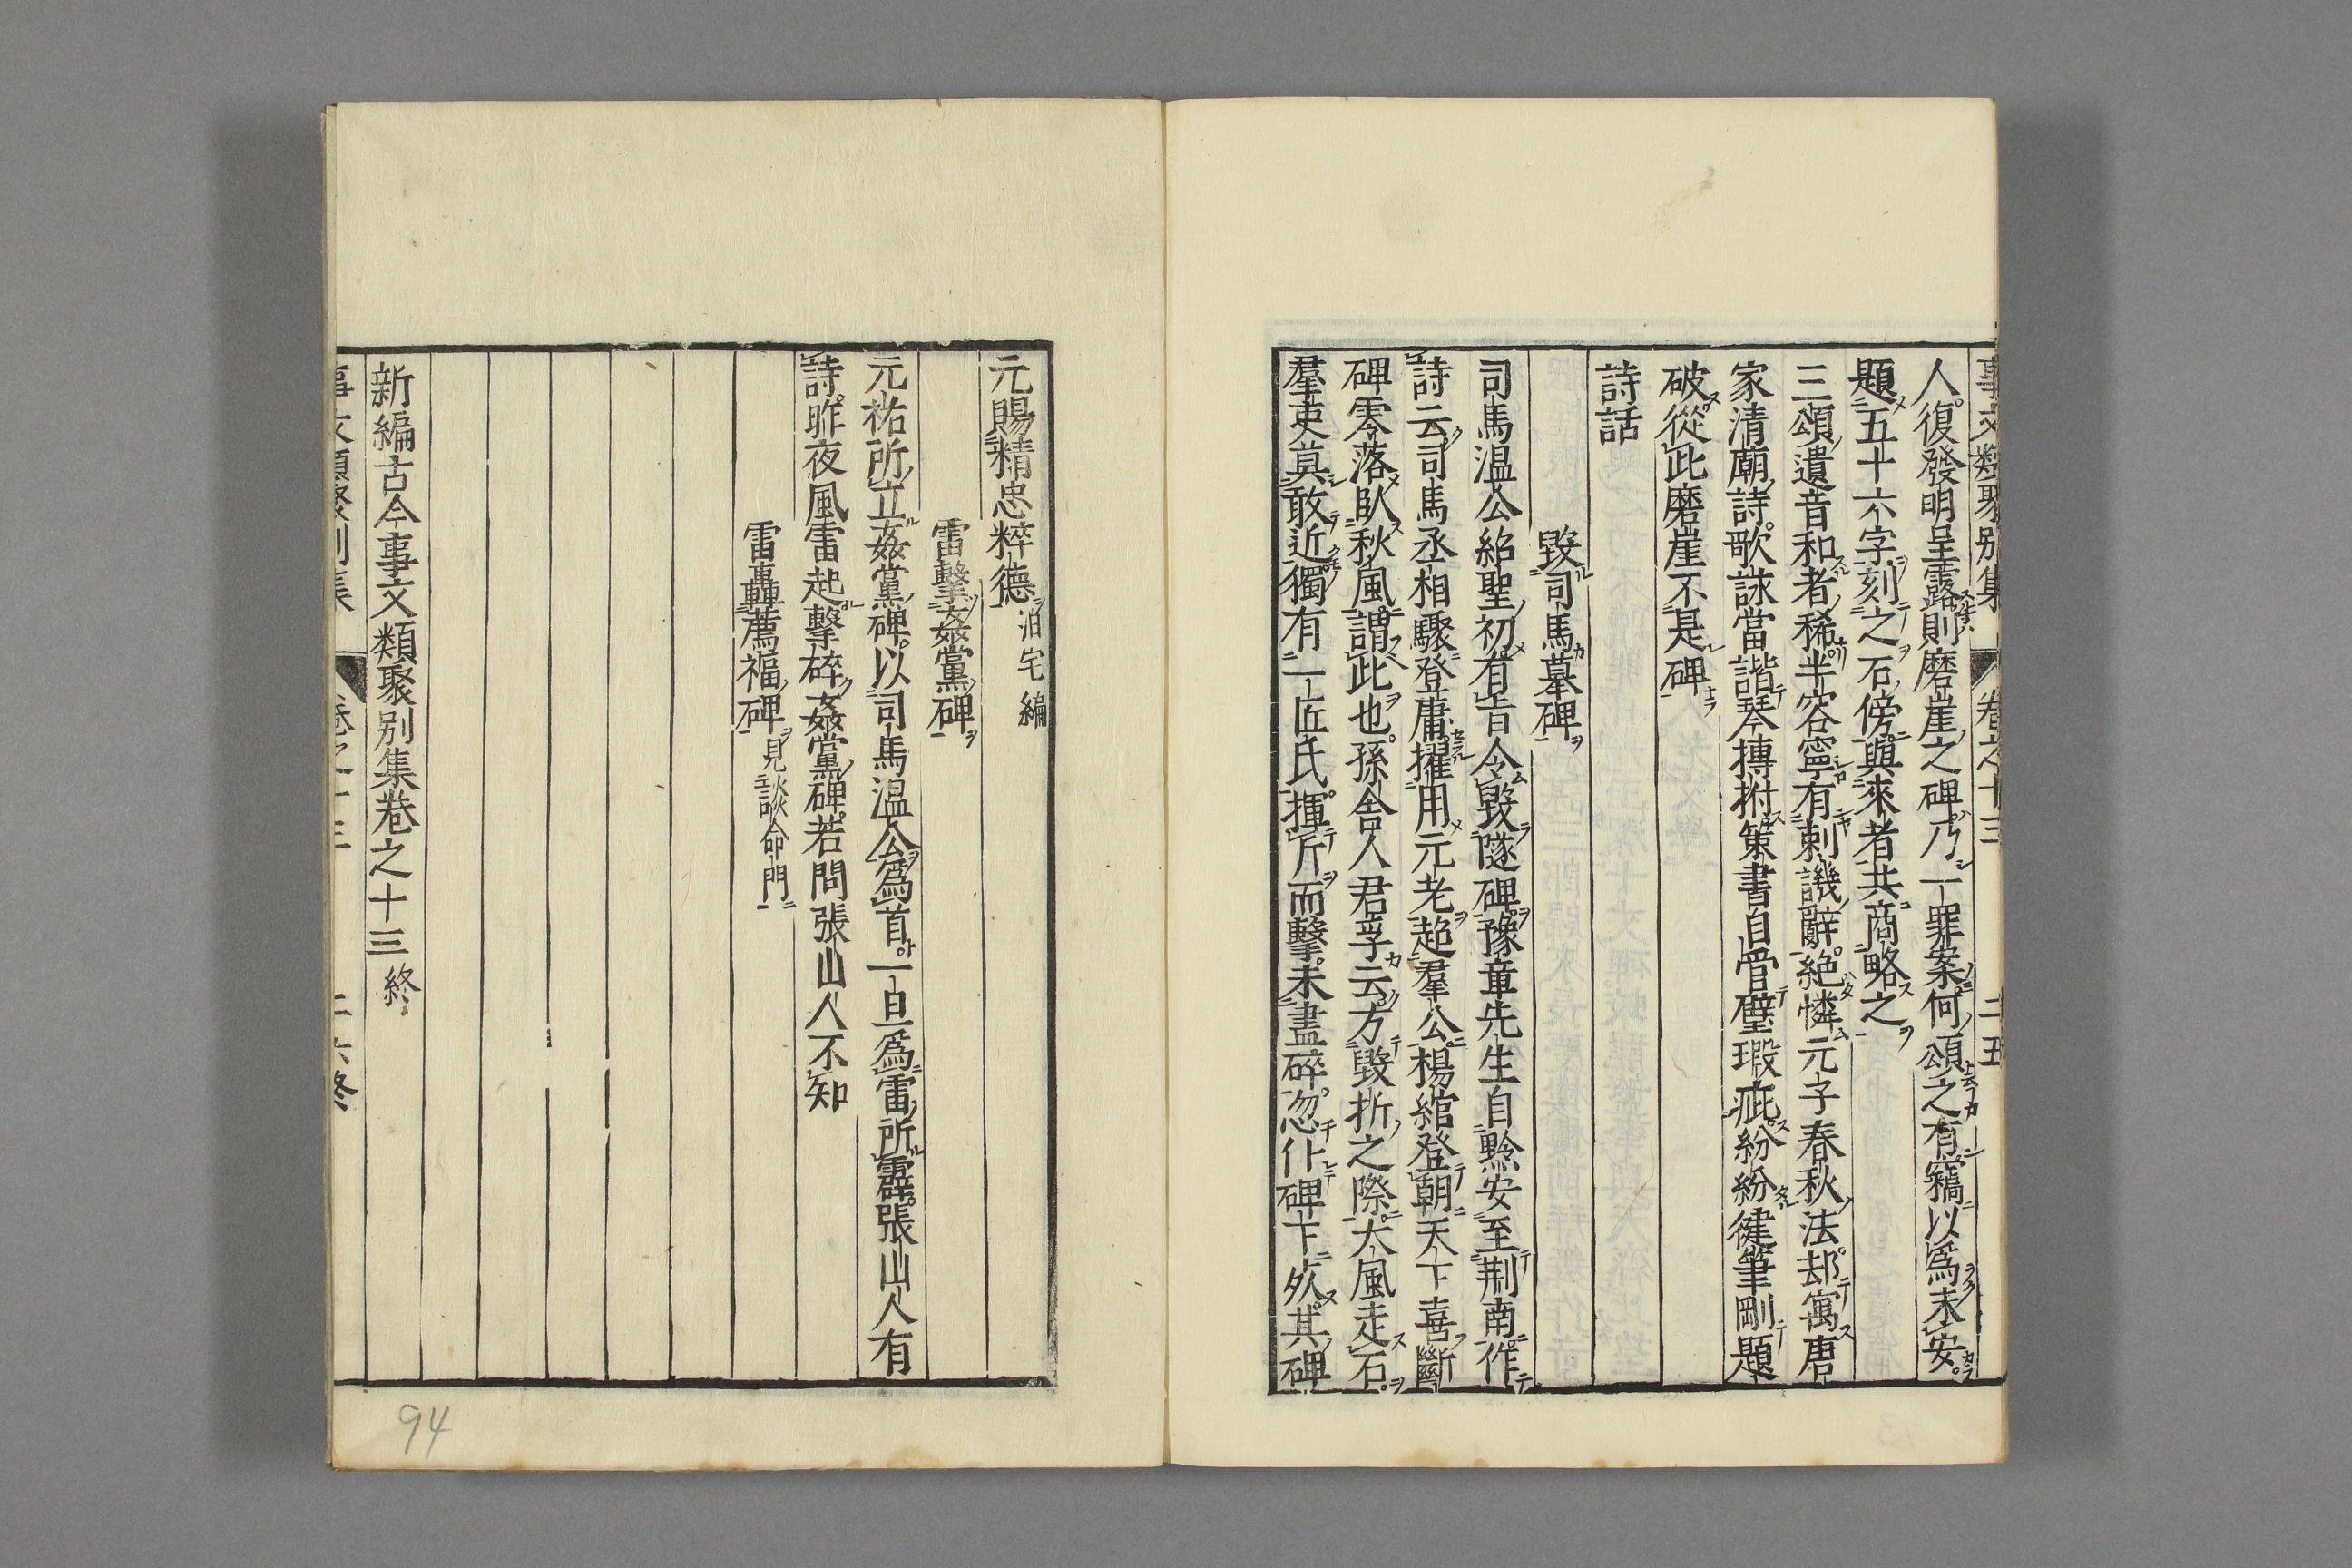 事文類聚別集 卷之十三 二五
人復發明呈露則磨崖之碑乃一罪案何頌之有竊以爲未安
題五十六字刻之石傍與來者共商略之
三頌遺音和者稀半容寧有刺譏辭絶憐元子春秋法却寓唐
家清廟詩歌詠當諧琴摶拊策書自管璧瑕疵紛紛健筆剛題
破從此磨崖不是碑
詩話
毀司馬墓碑
司馬温公紹聖初有旨令毀隧碑豫章先生自黔安至荆南作
詩云司馬丞相驟登庸擢用元老超羣公楊綰登朝天下喜斷
碑零落臥秋風謂此也孫舎人君孚云方毀折之際大風走石
羣吏莫敢近獨有一匠氏揮斤而擊未盡碎忽仆碑下死其碑
元賜精忠粹德 泊宅編
雷擊姦黨碑
元祐所立姦黨碑以司馬温公爲首一旦爲雷所霹張山人有
詩昨夜風雷起擊碎姦黨碑若問張山人不知
雷轟薦福碑 見談命門
新編古今事文類聚別集卷之十三 終
事文類聚別集 卷之十三 二六終
94